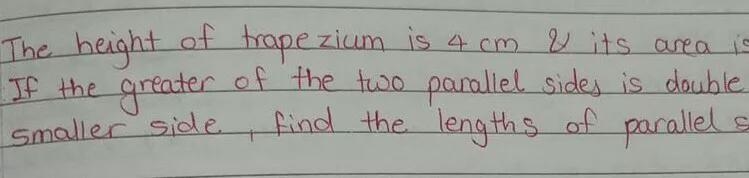 The height of trapezium is 4 cm & its area is
If the greater of the two parallel sides is double
smaller side, find the lengths of parallel s